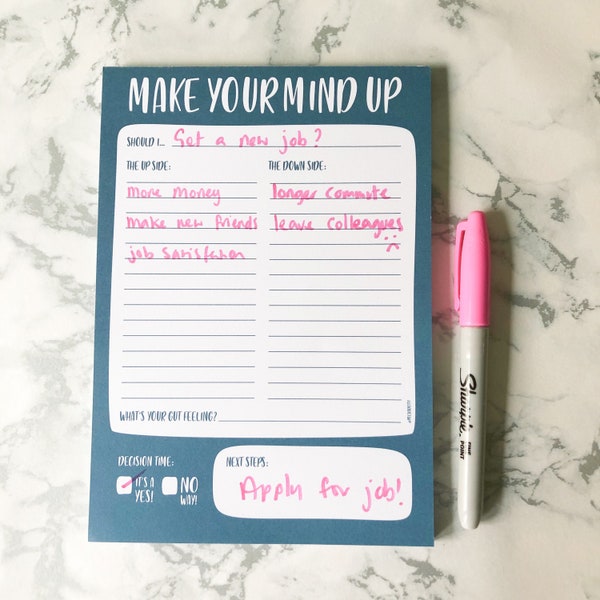 MAKE YOUR MIND UP
SHOULD I... Get a new job?
THE UP SIDE:
more money
make new friends
job satisfaction
THE DOWN SIDE:
longer commute
leave colleagues
WHAT'S YOUR GUT FEELING?
DECISION TIME:
IT'S A YES!
NO WAY!
NEXT STEPS:
Apply for job!
Sharpie
FINE
POINT